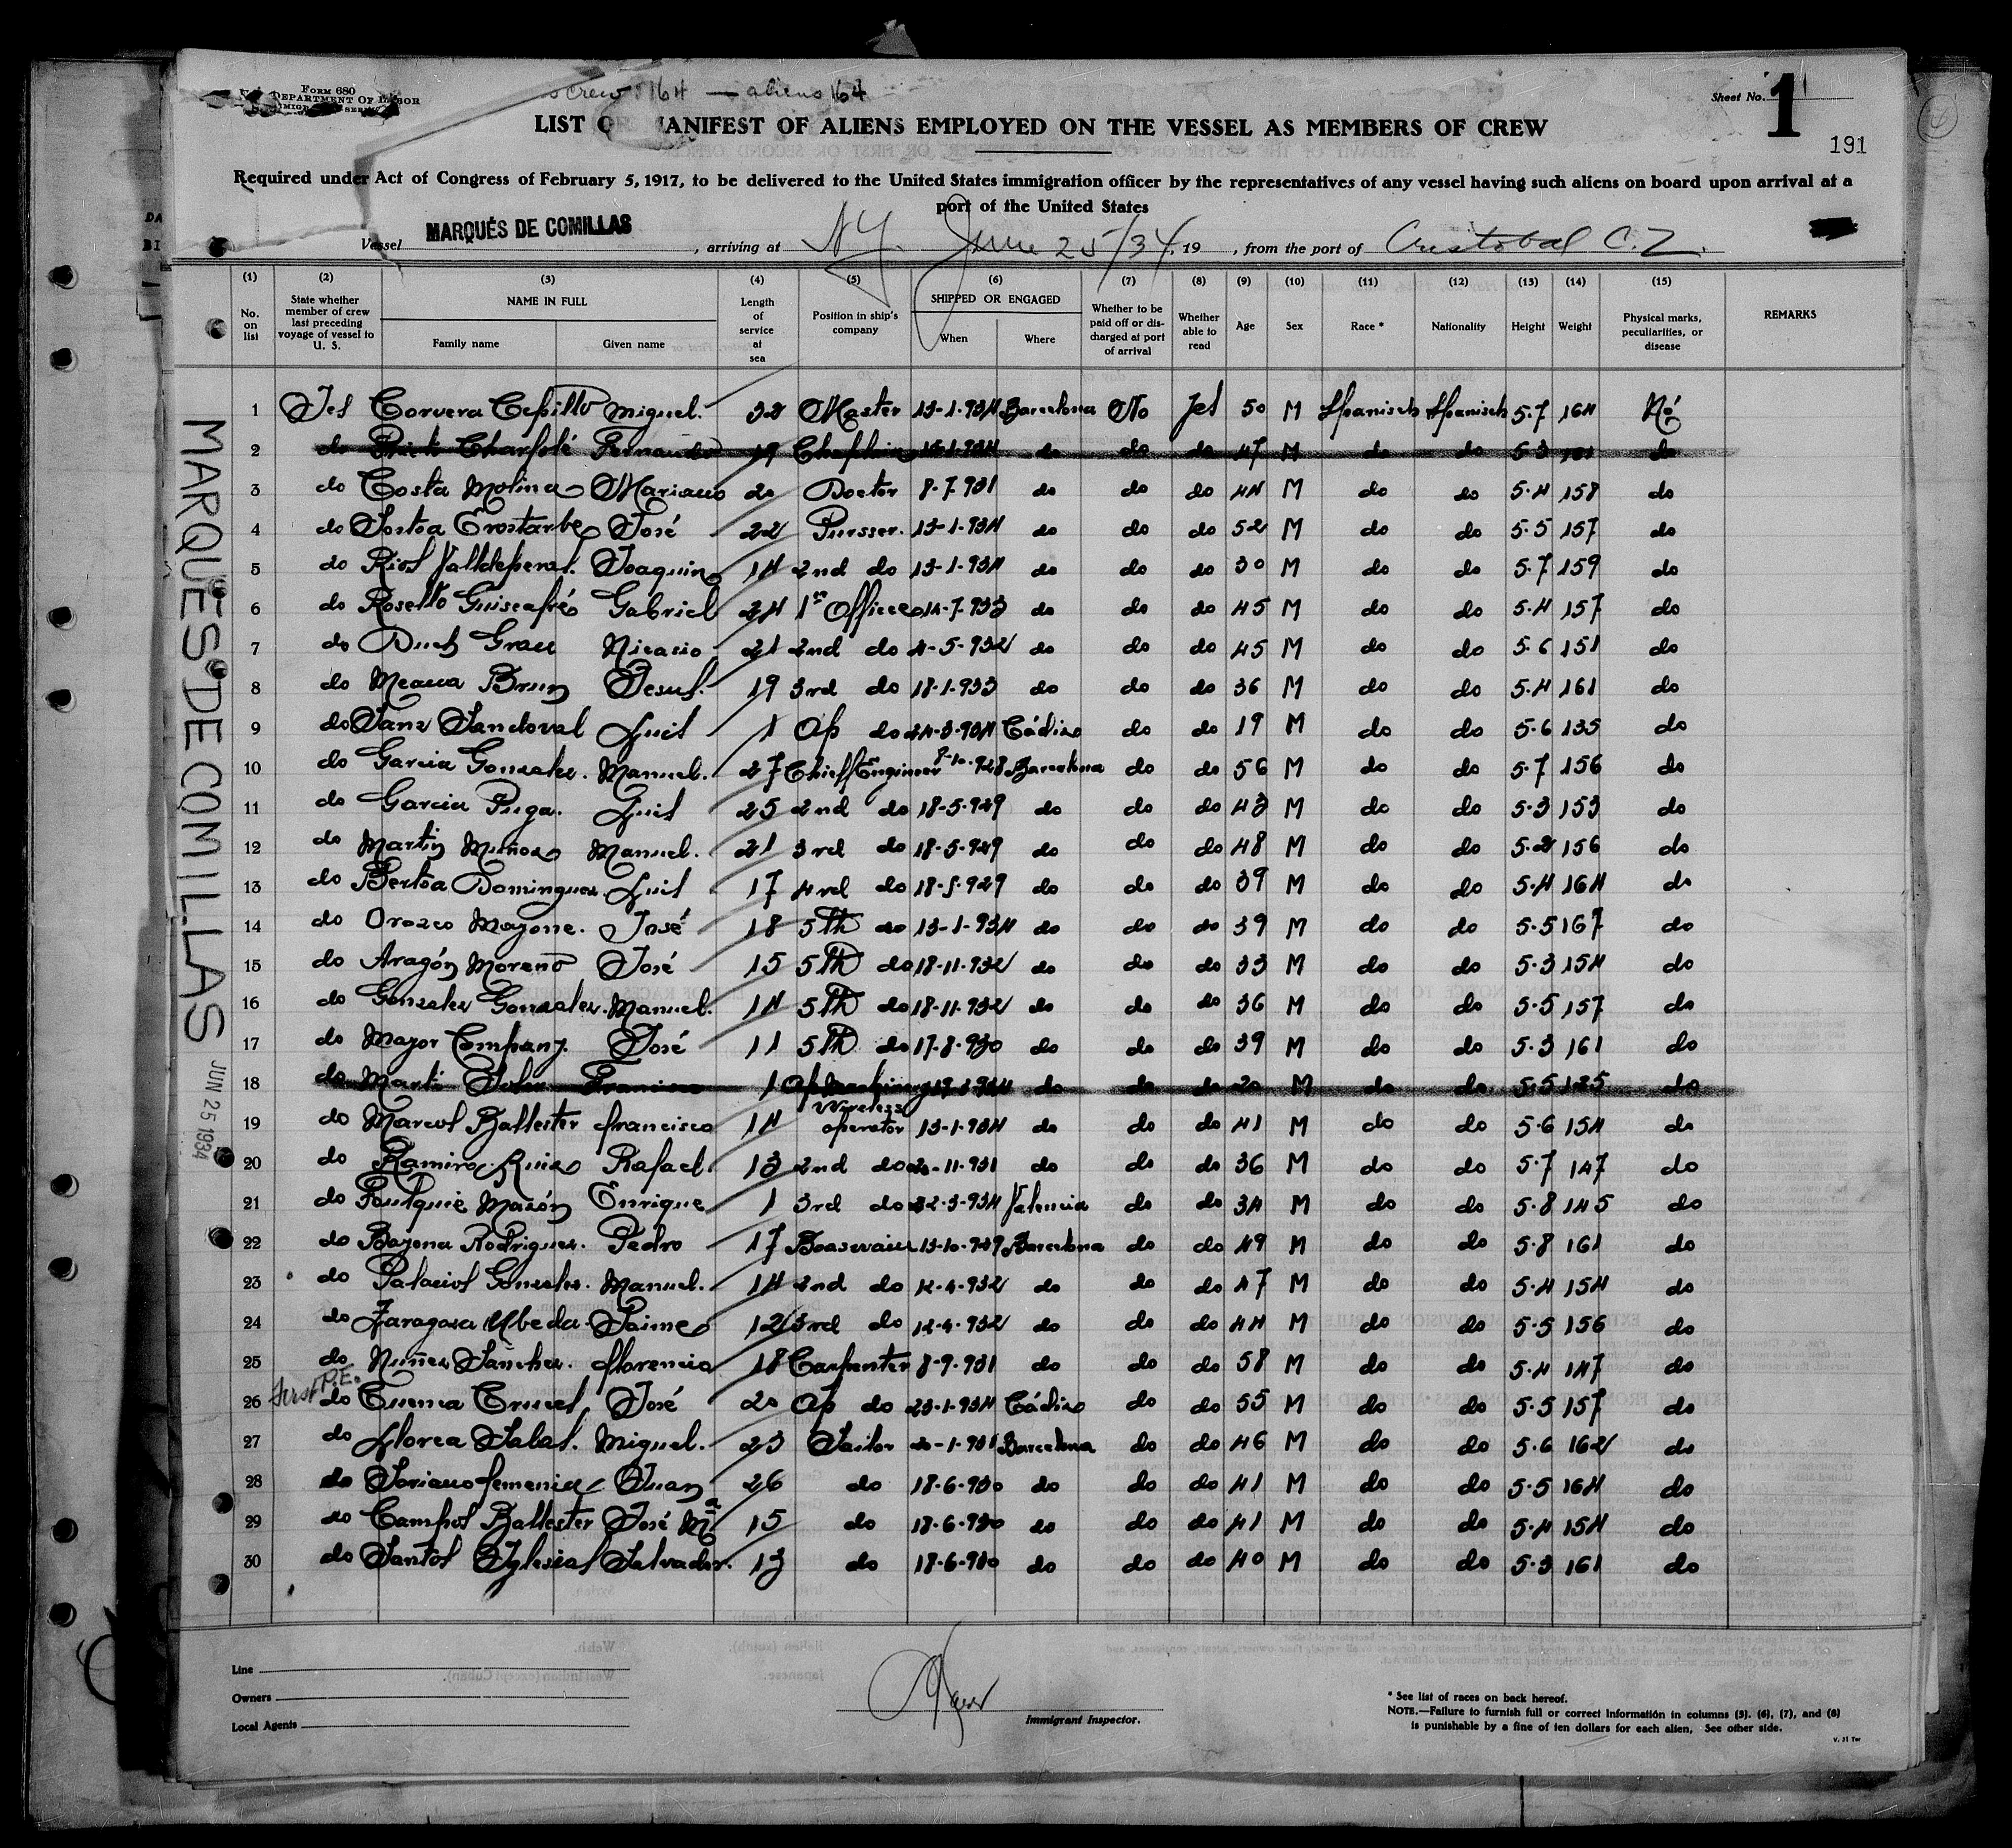 Form 680
DEPARTMENT OF LABOR
crew 164 — aliens 164
Sheet No. 1
191
LIST OR MANIFEST OF ALIENS EMPLOYED ON THE VESSEL AS MEMBERS OF CREW
Required under Act of Congress of February 5, 1917, to be delivered to the United States immigration officer by the representatives of any vessel having such aliens on board upon arrival at a
port of the United States
Vessel MARQUÉS DE COMILLAS, arriving at N.Y. June 25/34, 19 , from the port of Cristobal C.Z.
(1) (2) (3) (4) (5) (6) (7) (8) (9) (10) (11) (12) (13) (14) (15)
No. on list | State whether member of crew last preceding voyage of vessel to U. S. | NAME IN FULL Family name Given name | Length of service at sea | Position in ship's company | SHIPPED OR ENGAGED When Where | Whether to be paid off or discharged at port of arrival | Whether able to read | Age | Sex | Race * | Nationality | Height | Weight | Physical marks, peculiarities, or disease | REMARKS
1 Yes Corvera Cepillo Miguel. 32 Master 13-1-934 Barcelona No Yes 50 M Spanisch Spanisch 5.7 164 No
2 do Fernando 19 Chaplain do do do 47 M do do 5 3 do
3 do Costa Molina Mariano 20 Doctor 8-7-931 do do do 44 M do do 5.4 158 do
4 do Sostoa Erostarbe José 22 Pursser. 13-1-934 do do do 52 M do do 5.5 157 do
5 do Rios Valldeperas. Joaquin 14 2nd do 13-1-934 do do do 30 M do do 5.7 159 do
6 do Rosello Guiscafré Gabriel 24 1er Officer 14-7-933 do do do 45 M do do 5.4 157 do
7 do Duch Grau Nicasio 21 2nd do 4-5-932 do do do 45 M do do 5.6 151 do
8 do Meana Brun Jesus. 19 3rd do 18-1-933 do do do 36 M do do 5.4 161 do
9 do Sanz Sandoval Luis 1 Ap do 24-3-934 Cádiz do do 19 M do do 5.6 135 do
10 do Garcia Gonzalez. Manuel. 27 Chieff Engineer 7-10-928 Barcelona do do 56 M do do 5.7 156 do
11 do Garcia Puga. Luis 25 2nd do 18-5-929 do do do 43 M do do 5.3 153 do
12 do Martin Muñoz Manuel. 21 3rd do 18-5-929 do do do 48 M do do 5.2 156 do
13 do Bertoa Dominguez. Luis 17 4rd do 18-5-929 do do do 39 M do do 5.4 164 do
14 do Orozco Mayone. José 18 5th do 13-1-934 do do do 39 M do do 5.5 167 do
15 do Aragón Moreno José 15 5th do 18-11-932 do do do 33 M do do 5.3 154 do
16 do Gonzalez Gonzalez. Manuel. 14 5th do 18-11-932 do do do 36 M do do 5.5 157 do
17 do Mayor Company. José 11 5th do 17-8-930 do do do 39 M do do 5.3 161 do
18 do Marti Soler Francisco 1 Ap do do do 20 M do do 5.5 do
19 do Marcos Ballester francisco 14 Wireless operator 13-1-934 do do do 41 M do do 5.6 154 do
20 do Ramirez Ruiz Rafael. 13 2nd do 20-11-931 do do do 36 M do do 5.7 147 do
21 do Foulquie Mazón Enrique 1 3rd do 22-3-934 Valencia do do 34 M do do 5.8 145 do
22 do Bayona Rodriguez. Pedro 17 Boaswain 13-10-929 Barcelona do do 49 M do do 5.8 161 do
23 do Palacios Gonzalez. Manuel. 14 2nd do 12-4-932 do do do 47 M do do 5.4 154 do
24 do Zaragoza Ubeda. Jaime 12 3rd do 12-4-932 do do do 44 M do do 5.5 156 do
25 do Nuñez Sanchez. florencio 18 Carpenter 8-9-931 do do do 58 M do do 5.4 147 do
26 First P.E. do Cuenca Cruces José 20 Ap do 23-1-934 Cádiz do do 55 M do do 5.5 157 do
27 do Llorca Salas. Miguel. 23 Sailor 20-1-931 Barcelona do do 46 M do do 5.6 162 do
28 do Soriano femenia Juan 26 do 18-6-930 do do do 41 M do do 5.5 164 do
29 do Campos Ballester José Ma 15 do 18-6-930 do do do 41 M do do 5.4 154 do
30 do Santos Yglesias Salvador. 13 do 18-6-930 do do do 40 M do do 5.3 161 do
MARQUES DE COMILLAS
JUN 25 1934
Line
Owners
Local Agents
Immigrant Inspector.
* See list of races on back hereof.
NOTE.—Failure to furnish full or correct information in columns (3), (6), (7), and (8)
is punishable by a fine of ten dollars for each alien. See other side.